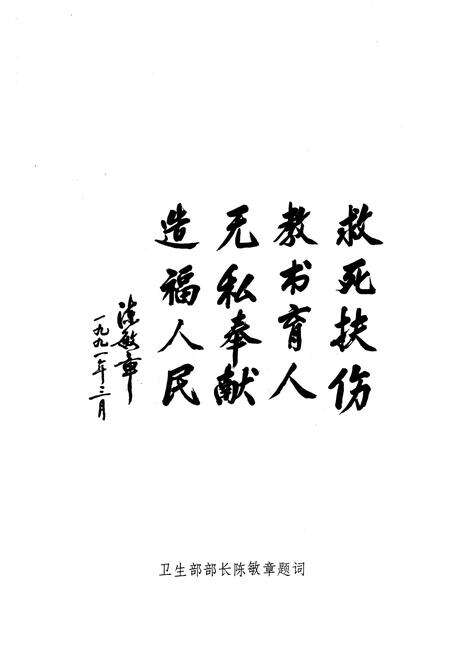 救死扶伤
教书育人
无私奉献
造福人民
陈敏章
一九九一年三月
卫生部部长陈敏章题词